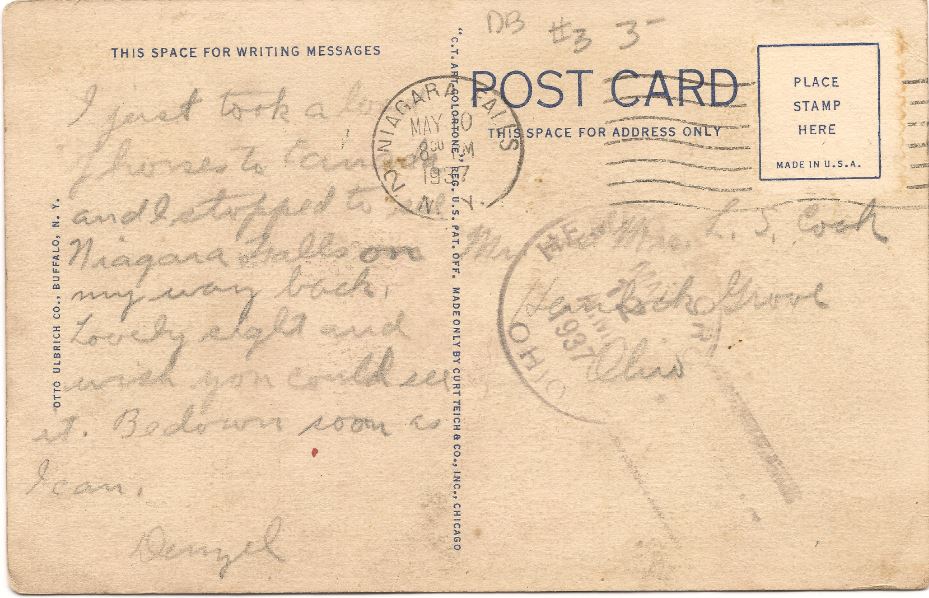 DB #3 3-
THIS SPACE FOR WRITING MESSAGES
I just took a
horses to
and I stopped to see
Niagara Falls on
my way back.
Lovely sight and
wish you could see
it. Be down soon as
I can.
Denzel
OTTO ULBRICH CO., BUFFALO, N. Y.
"C.T. ART-COLORTONE" REG. U.S. PAT. OFF. MADE ONLY BY CURT TEICH & CO., INC., CHICAGO
NIAGARA FALLS
MAY
8 30 PM
1937
N. Y.
POST CARD
THIS SPACE FOR ADDRESS ONLY
PLACE
STAMP
HERE
MADE IN U.S.A.
Mr and Mrs. L. S. Cook
Hemlock Grove
Ohio
1937
OHIO